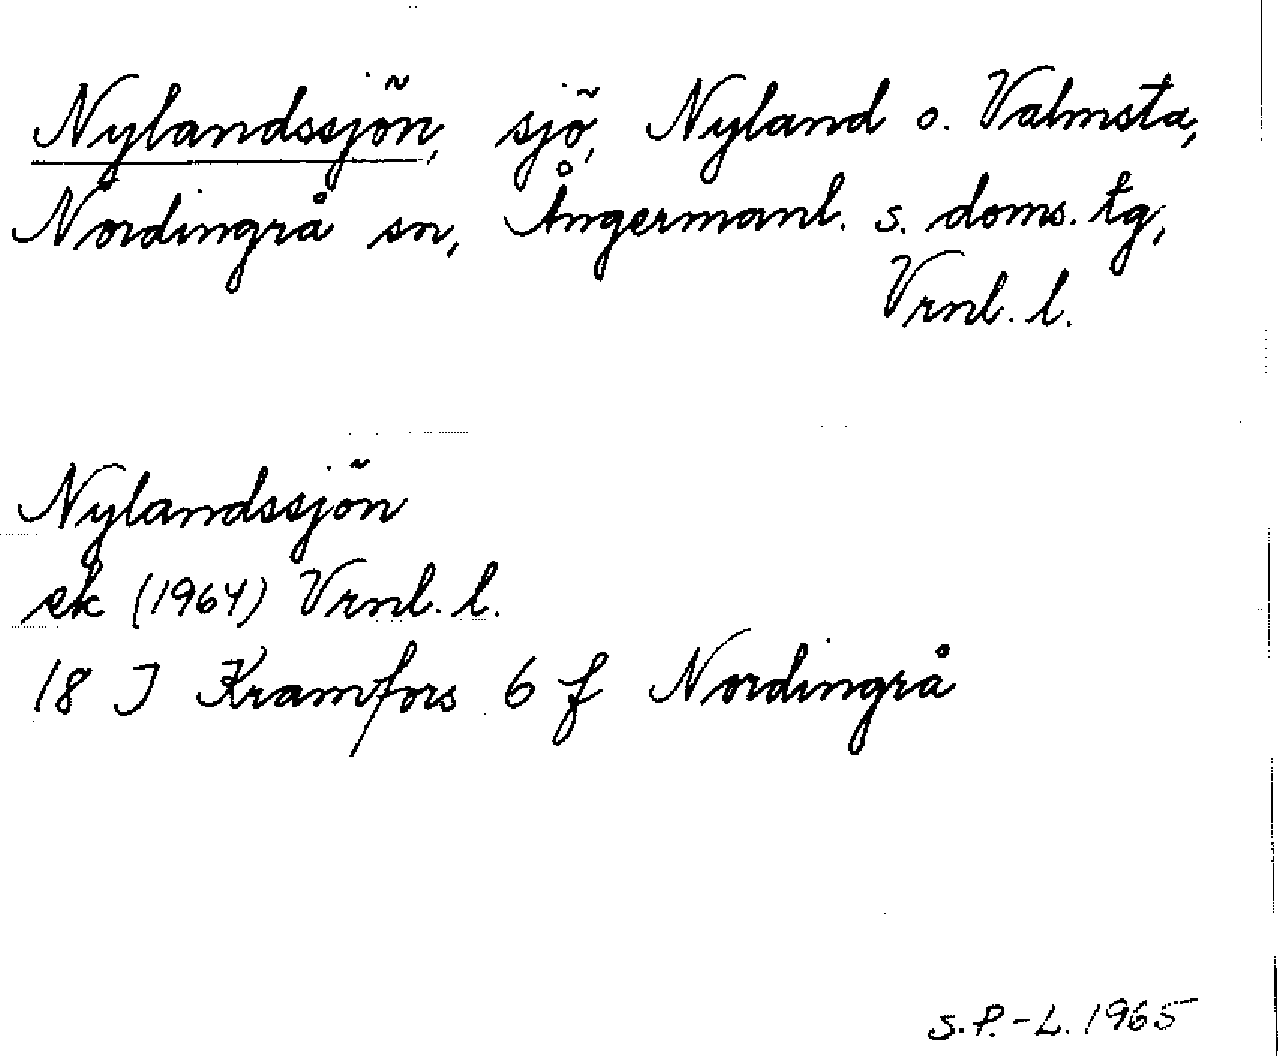 Nylandssjön, sjö, Nyland o. Valmsta,
Nordingrå sn, Ångermanl. s. doms. tg,
Vrnl. l.
Nylandssjön
ek (1964) Vrnl. l.
18 J Kramfors 6 f Nordingrå
S.P.-L. 1965